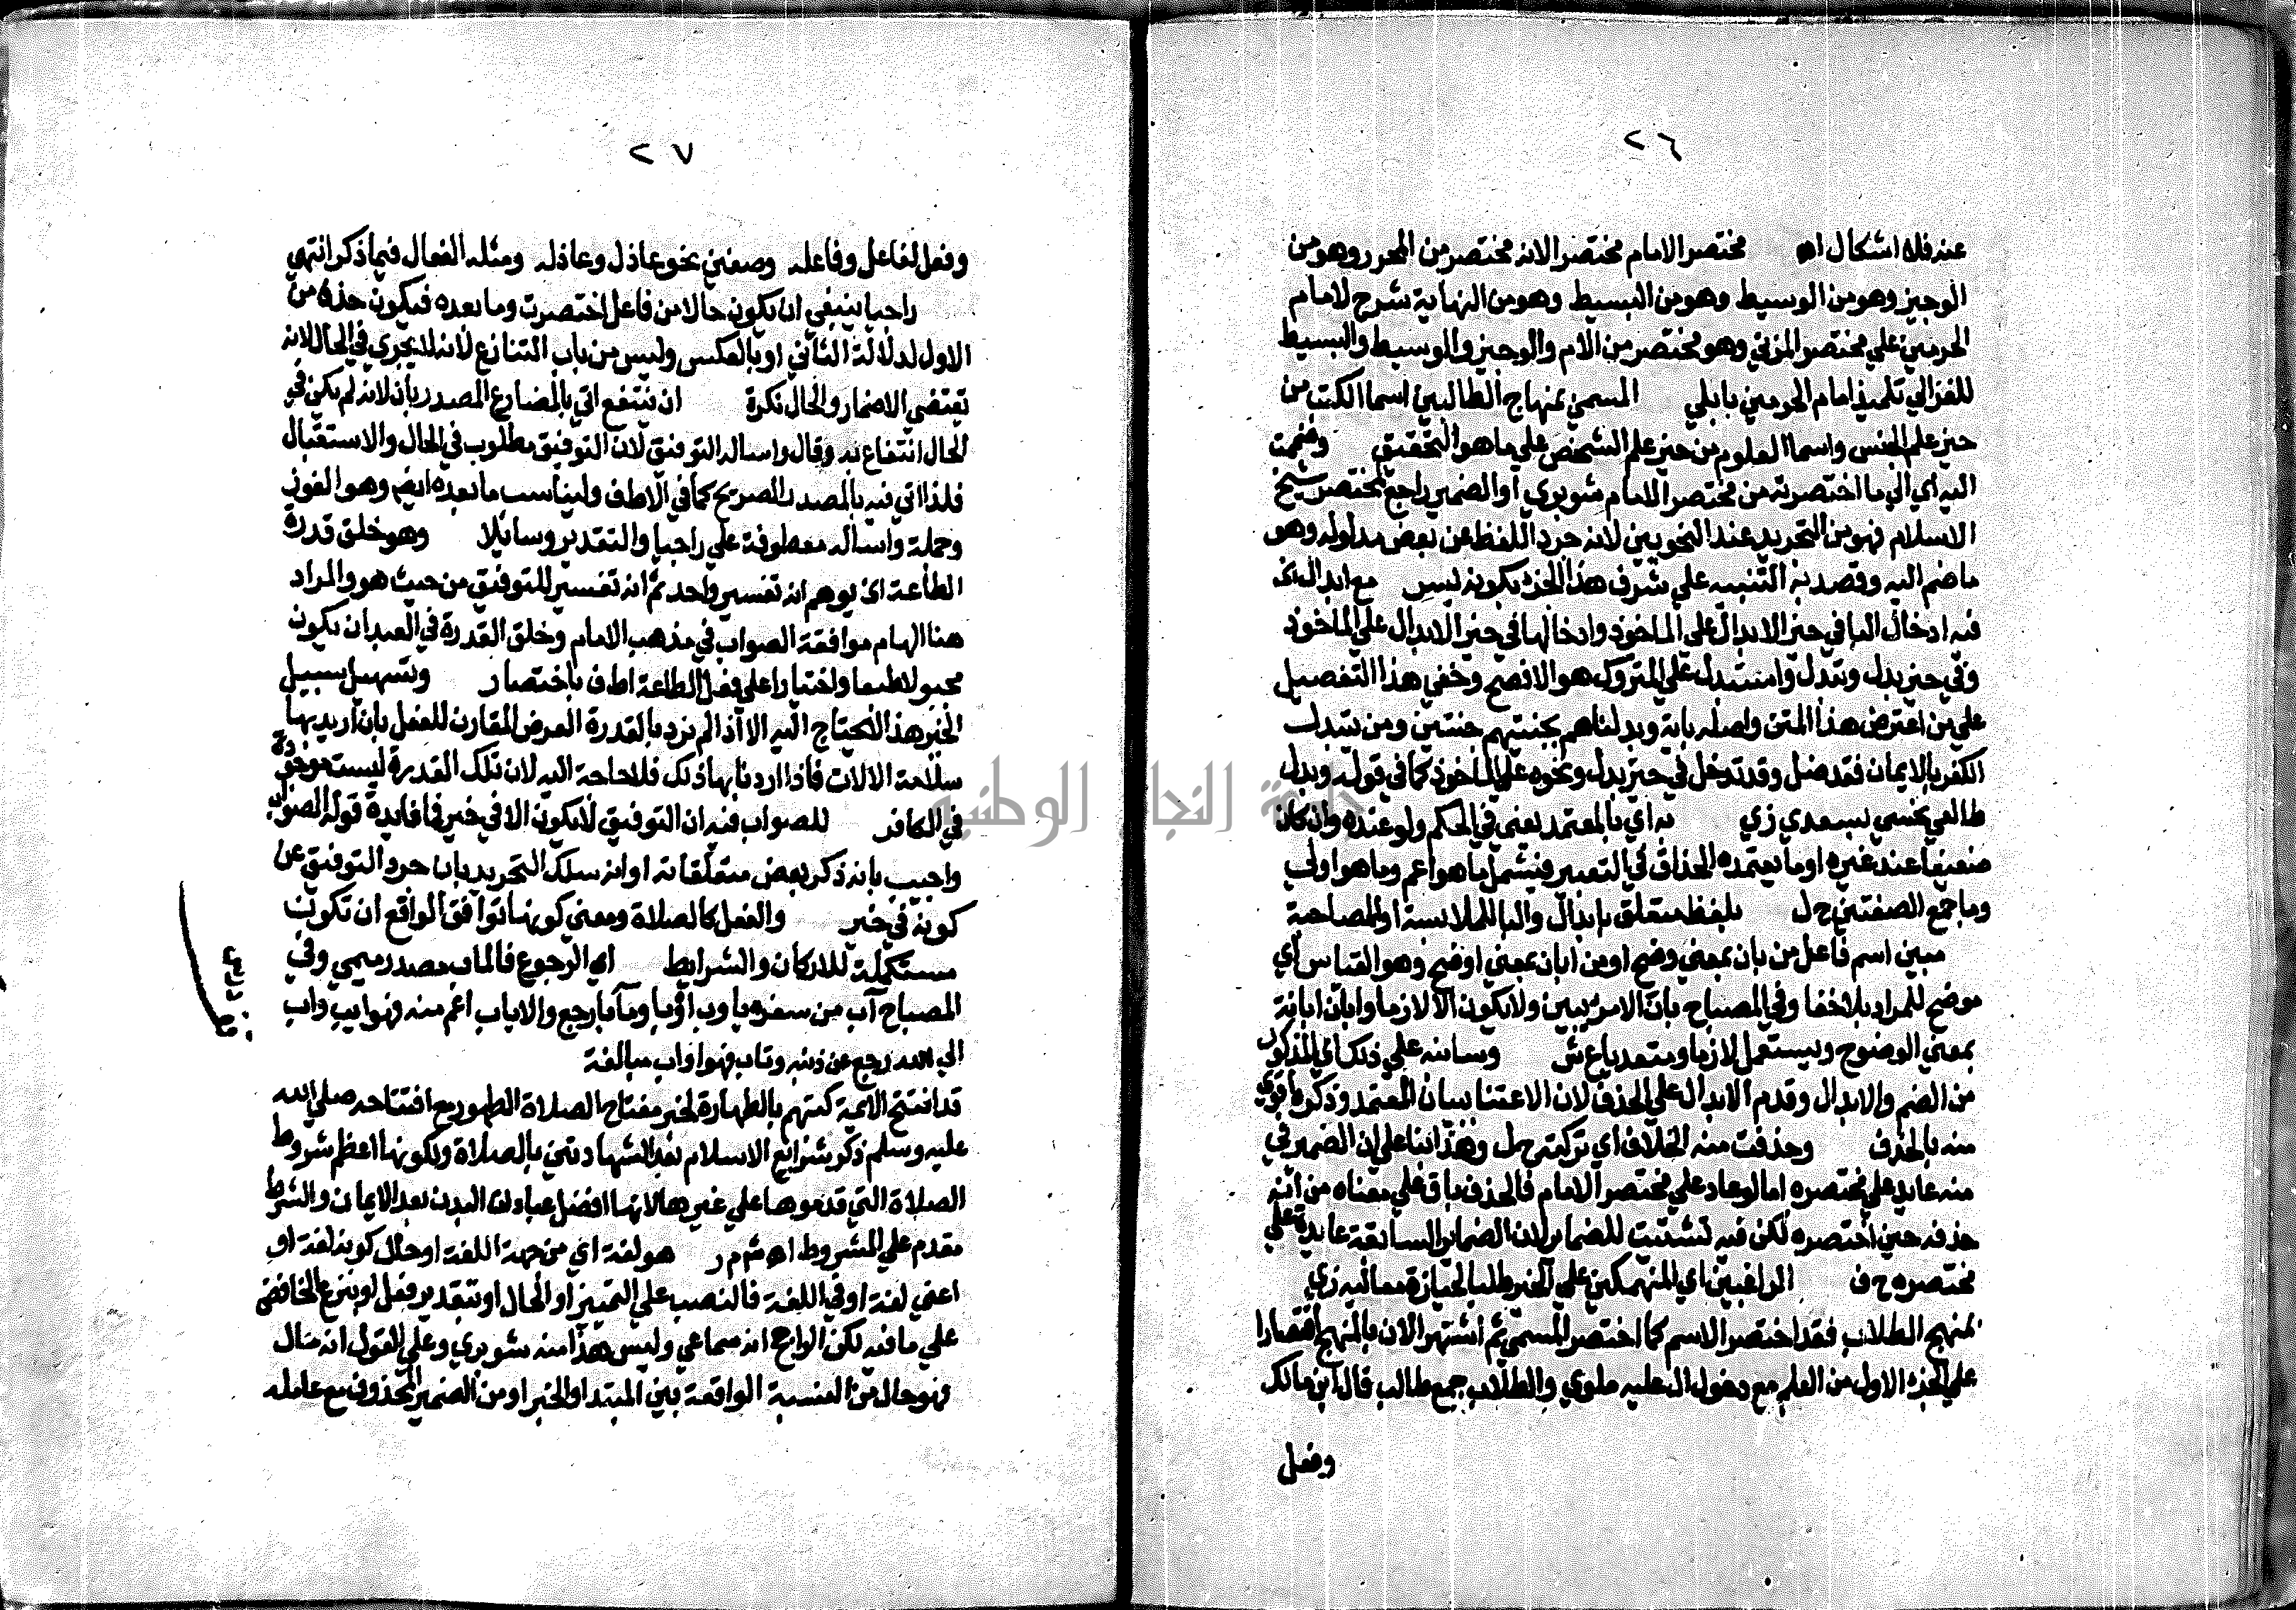 ٢٦
عنه فلا اشكال اه مختصر الامام مختصر الانه مختصر من المحرر وهو من
الوجيز وهو من الوسيط وهو من البسيط وهو من النهاية شرح لامام
الحرمين علي مختصر المزني وهو مختصر من الام والوجيز والوسيط والبسيط
للغزالي تلميذ امام الحرمين بابلي المسمي بمنهاج الطالبين اسما الكتب من
حيز علم الجنس واسما العلوم من حيز علم الشخص علي ما هو التحقيق وضممت
اليه اي الي ما اختصرته من مختصر الامام شوبري او الضمير راجع لمختصر شيخ
الاسلام فهو من التجريد عند النحويين لانه جرد اللفظ عن بعض مدلوله وهو
ما ضم اليه وقصد به التنبيه علي شرف هذا الجزء بكونه ليس مع ابدال
فيه ادخال البا في حيز الابدال علي الماخوذ وادخالها في حيز الابدال علي الماخوذ
وفي حيز بدل وتبدل واستبدل علي المتروك هو الافصح وخفي هذا التفصيل
علي من اعترض هذا المتن واصله باية وبدلناهم بجنتيهم جنتين ومن يتبدل
الكفر بالايمان فقد ضل وقد تدخل في حيز بدل ونحوه علي الماخوذ كما في قوله وبدل
طالعي نحسي بسعدي زي به اي بالمعتمد يعني في الحكم ولو عنده وان كان
ضعيفا عند غيره او ما يعتمده الحذاق في التعبير فيشمل ما هو اعم وما هو اولي
وما جمع الصفتين ح ل بلفظ متعلق بابدال والبا للملابسة او المصاحبة
مبين اسم فاعل من بان بمعني وضح او من ابان بمعني اوضح وهو القياس اي
موضح للمراد بلا خفا وفي المصباح بان الامر يبين ولا يكون الا لازما وابان ابانة
بمعني الوضوح ويستعمل لازما ومتعديا ع ش وسابينه علي ذلك اي المذكور
من الضم والابدال وقدم الابدال علي الحذف لان الاعتنا ببيان المعتمد وذكره اقوي
منه بالحذف وحذفت منه الخلاف اي تركته ح ل وهذا بنا علي ان الضمير في
منه عايد علي مختصره اما لو عاد علي مختصر الامام فالحذف باق علي معناه من انه
حذفه حين اختصره لكن فيه تشتيت للضماير لان الضماير السابقة عايدة علي
مختصره ح ف الراغبين اي المنهمكين علي الخير طلبا لحيازة معاليه زي
بمنهج الطلاب فقد اختصر الاسم كما اختصر المسمي ثم اشتهر الان بالمنهج اقتصارا
علي الجزء الاول من العلم مع دخول ال عليه ملوي والطلاب جمع طالب قال ابن مالك
وفعل
٢٧
وفعل لفاعل وفاعله وصفين نحو عاذل وعاذله ومثله الفعال فيما ذكر انتهي
راجيا ينبغي ان يكون حالا من فاعل اختصرت وما بعده فيكون حذف من
الاول لدلالة الثاني او بالعكس وليس من باب التنازع لانه لا يجري في الحال لانه
تقتضي الاضمار والحال نكرة ان ينتفع اتي بالمضارع المصدر بان لانه لم يكن في
الحال انتفاع به وقال واساله التوفيق لان التوفيق مطلوب في الحال والاستقبال
فلذا اتي فيه بالمصدر الصريح كما في الاطف وليناسب ما بعده ايضا وهو الفوز
وجملة واساله معطوفة علي راجيا والتقدير وسايلا وهو خلق قدرة
الطاعة الخ يوهم انه تفسير واحد ثم انه تفسير للتوفيق من حيث هو والمراد
هنا الهام موافقة الصواب في مذهب الامام وخلق القدرة في العبد ان يكون
مجبولا طبعا واختيارا علي فعل الطاعة اط ف باختصار وتسهيل سبيل
الخير هذا لا يحتاج اليه الا اذا لم نرد بالقدرة العرض المقارن للفعل بان اريد بها
سلامة الالات فاذا اردنا بها ذلك فلا حاجة اليه لان تلك القدرة ليست موجودة
في الكافر للصواب فيه ان التوفيق لا يكون الا في خير فما فايدة قوله الصواب
واجيب بانه ذكر بعض متعلقاته او انه سلك التجريد بان جرد التوفيق عن
كونه في خير والفعل كالصلاة ومعني كونها توافق الواقع ان تكون
مستكملة للاركان والشرايط اي الرجوع فالماب مصدر ميمي وفي
المصباح آب من سفره ياوب اوبا ومآبا رجع والاياب اعم منه فهو ايب واب
الي الله رجع عن ذنبه وتاب فهو اواب مبالغة
قد افتتح الايمة كتبهم بالطهارة لخبر مفتاح الصلاة الطهور مع افتتاحه صلي الله
عليه وسلم ذكر شرايع الاسلام بعد الشهادتين بالصلاة ولكونها اعظم شروط
الصلاة التي قدموها علي غيرها لانها افضل عبادات البدن بعد الايمان والشرط
مقدم علي المشروط اه ش م ر هو لغة اي من جهة اللغة او حال كونه لغة او
اعني لغة او في اللغة فالنصب علي التمييز او الحال او بتقدير فعل او بنزع الخافض
علي ما فيه لكن الراجح انه سماعي وليس هذا منه شوبري وعلي القول انه حال
فهو حال من النسبة الواقعة بين المبتدا والخبر او من الضمير المحذوف مع عامله